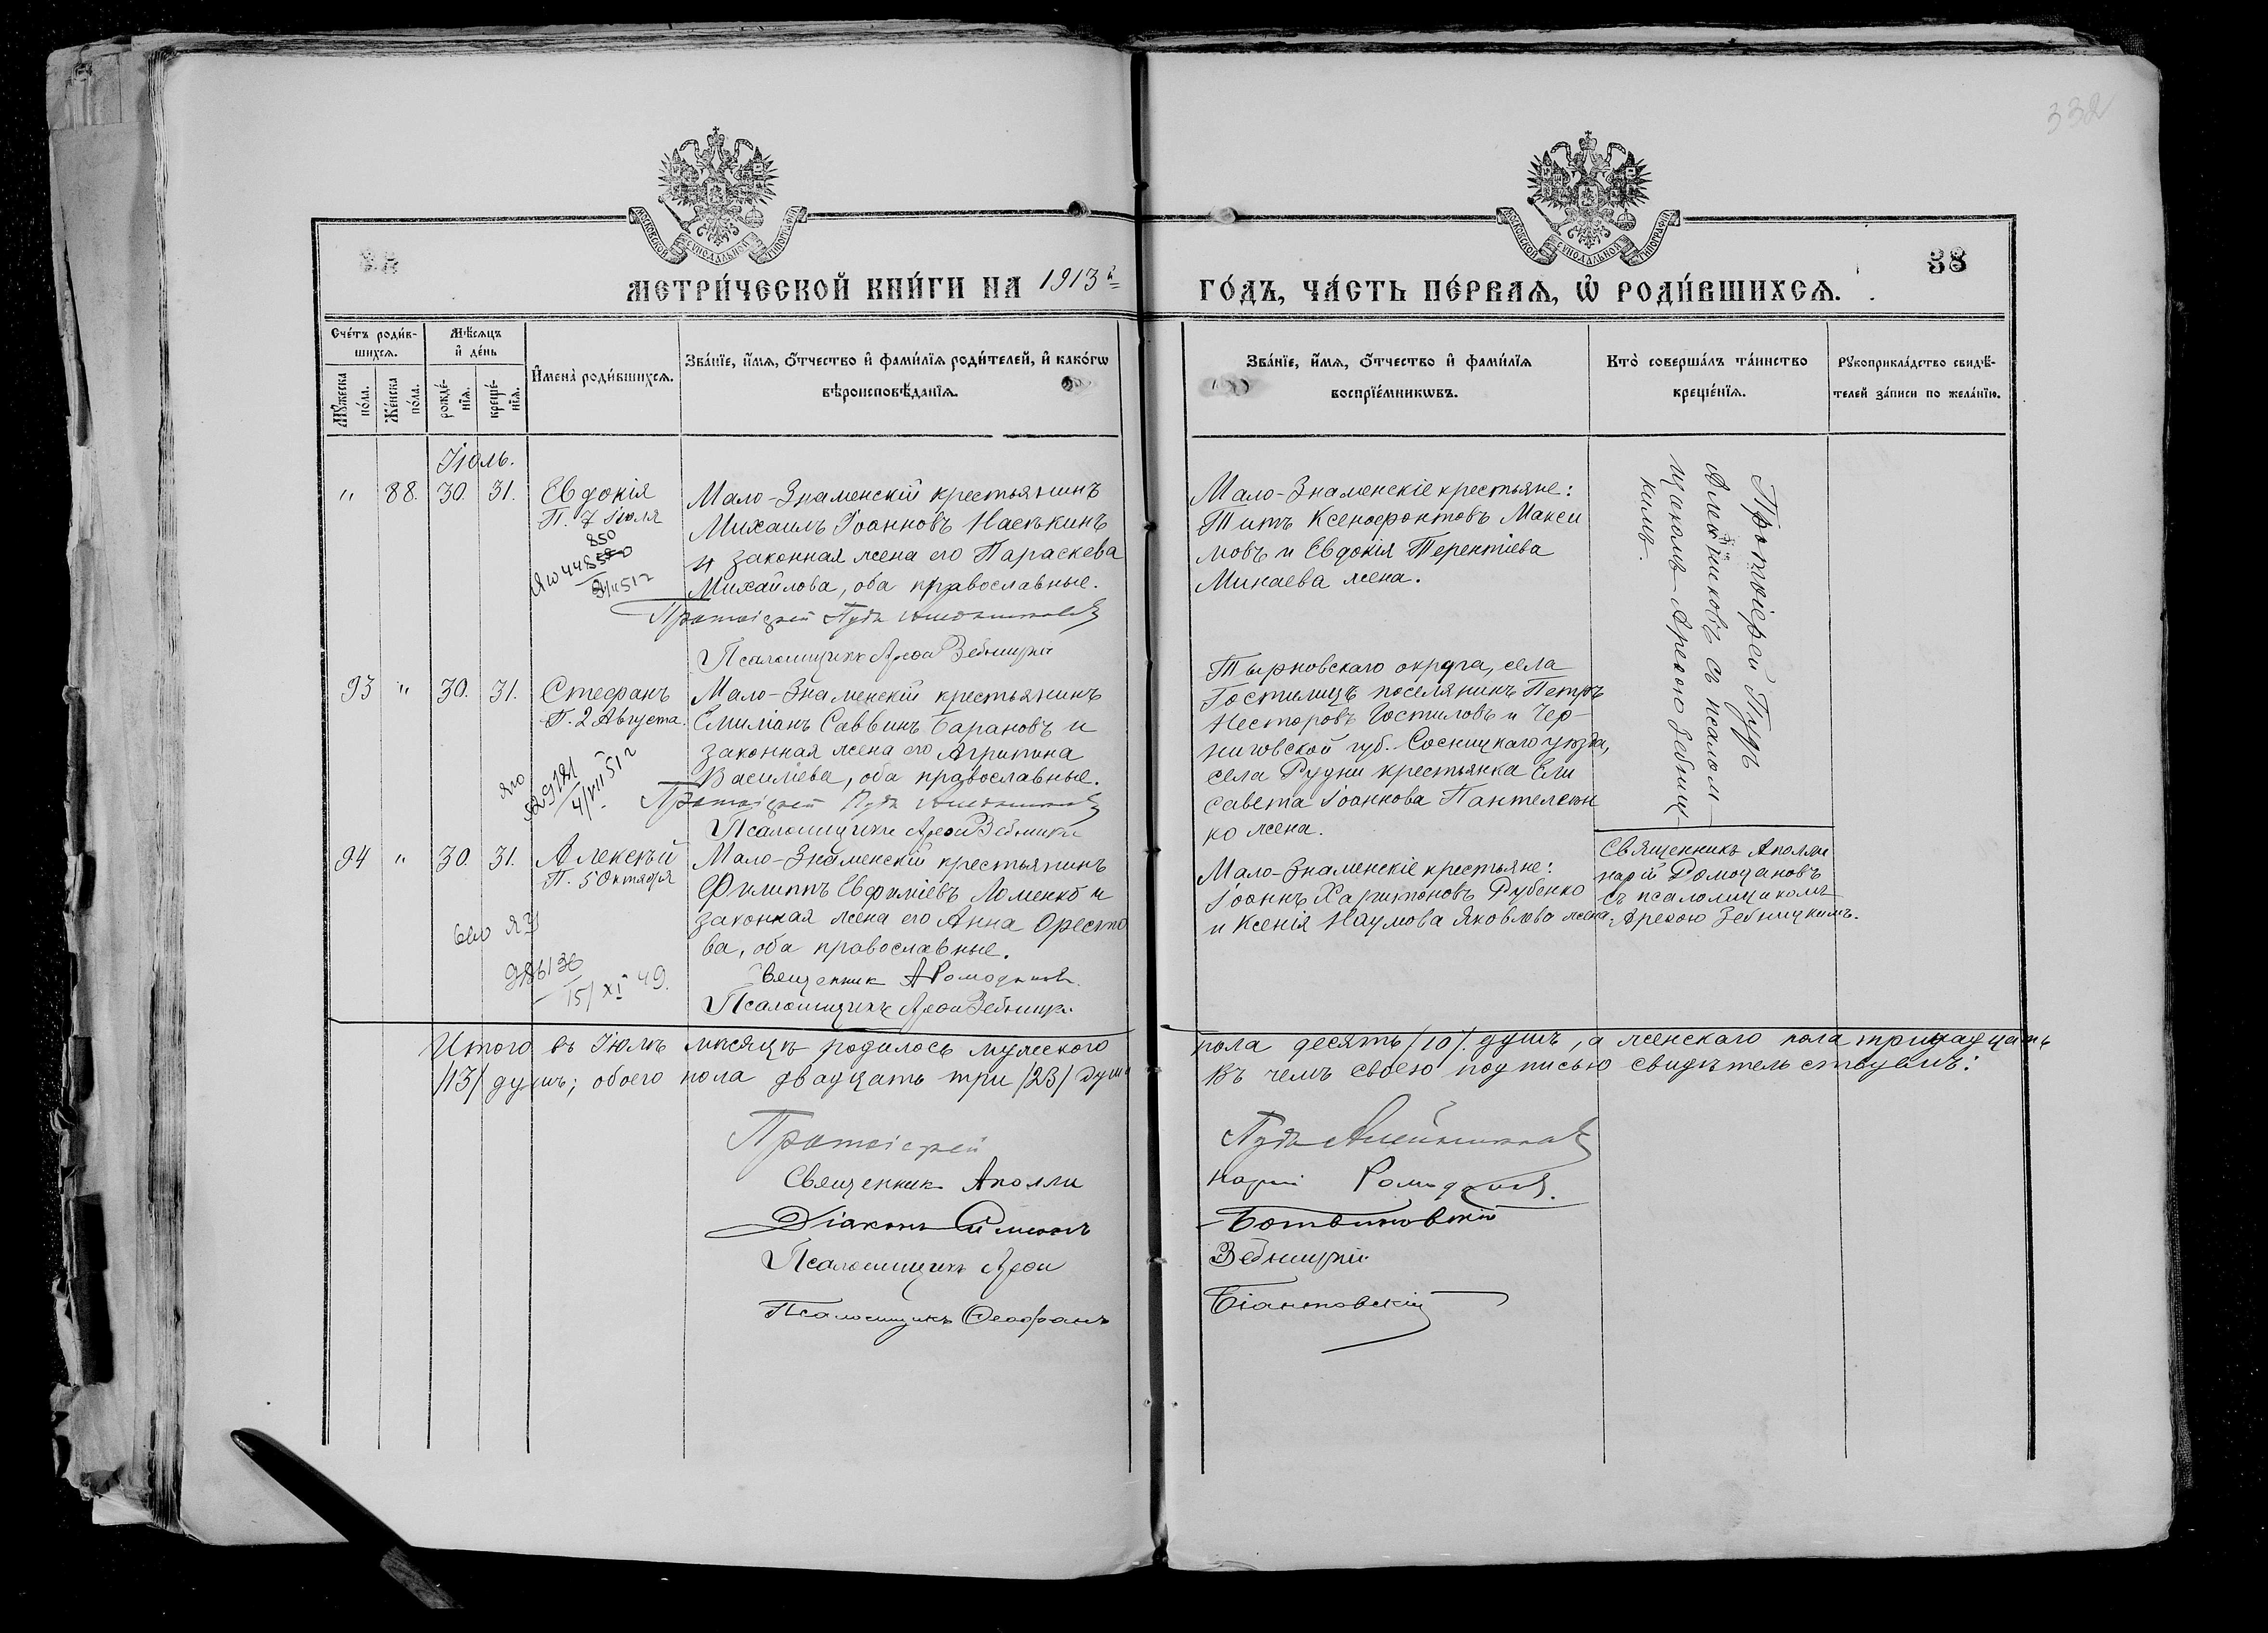 332
38
МОСКОВСКОЙ СѴНОДАЛЬНОЙ ТИПОГРАФІИ
МОСКОВСКОЙ СѴНОДАЛЬНОЙ ТИПОГРАФІИ
МЕТРИ́ЧЕСКОЙ КНИ́ГИ НА 1913й
ГО́ДЪ, ЧА́СТЬ ПЕ́РВАѦ, Ѡ҆ РОДИ́ВШИХСѦ.
Сче́тъ роди́в-
шихсѧ.
Мꙋ́жеска по́ла.
Же́нска по́ла.
Мѣ́сѧцъ
и҆ де́нь
рожде́-
нїѧ.
креще́-
нїѧ.
И҆мена̀ роди́вшихсѧ.
Зва́нїе, и҆́мѧ, ѻ҆́тчество и҆ фами́лїѧ роди́телей, и҆ како́гѡ
вѣроисповѣ́данїѧ.
Зва́нїе, и҆́мѧ, ѻ҆́тчество и҆ фами́лїѧ
воспрїе́мникѡвъ.
Кто̀ соверша́лъ та́инство
креще́нїѧ.
Рꙋкоприкла́дство свидѣ́-
телей за́писи по жела́нїю.
Іюль.
" 88. 30. 31. Евдокія
П. 7 Іюля
850
Мало-Знаменскій крестьянинъ
Михаилъ Іоанновъ
и законная жена его Параскева
Михайлова, оба православные.
Протоіерей Пудъ
Псаломщикъ Арефа Зебницкій
Мало-Знаменскіе крестьяне:
Титъ Ксенофонтовъ Макси
мовъ и Евдокія Терентіева
Минаева жена.
Протоіерей Пудъ
Алейниковъ съ псалом-
щикомъ Арефою Зебниц-
кимъ.
93 " 30. 31. Стефанъ
П. 2 Августа.
29181
4/VIII 51 г
Мало-Знаменскій крестьянинъ
Емиліанъ Саввинъ Барановъ и
законная жена его Агрипина
Василіева, оба православные.
Протоіерей Пудъ
Псаломщикъ Арефа Зебницкій
Тырновскаго округа, села
Гостилицъ поселянинъ Петръ
Несторовъ Гостиловъ и Чер-
ниговской губ. Сосницкаго уѣзда,
села Рудни крестьянка Ели
савета Іоаннова Пантелеен
ко жена.
94 " 30. 31. Алексѣй
П. 5 Октября
15/XI 49.
Мало-Знаменскій крестьянинъ
Филиппъ Евфиміевъ Ломенко и
законная жена его Анна Оресто
ва, оба православные.
Священникъ А Ромодановъ
Псаломщикъ Арефа Зебницкій
Мало-Знаменскіе крестьяне:
Іоаннъ Харитоновъ Рубенко
и Ксенія Наумова Яковлева жена.
Священникъ Аполли
нарій Ромодановъ
съ псаломщикомъ
Арефою Зебницкимъ.
Итого въ Іюлѣ мѣсяцѣ родилось мужескаго пола десять /10/ душъ, а женскаго пола тринадцать
/13/ душъ; обоего пола двадцать три /23/ души
Въ чемъ своею подписью свидѣтельствуемъ:
Протоіерей Пудъ Алейниковъ
Священникъ Аполли нарій Ромодановъ.
Діаконъ Симеонъ Ботвиновскій
Псаломщикъ Арефа Зебницкій
Псаломщикъ Феофанъ Біантовскій